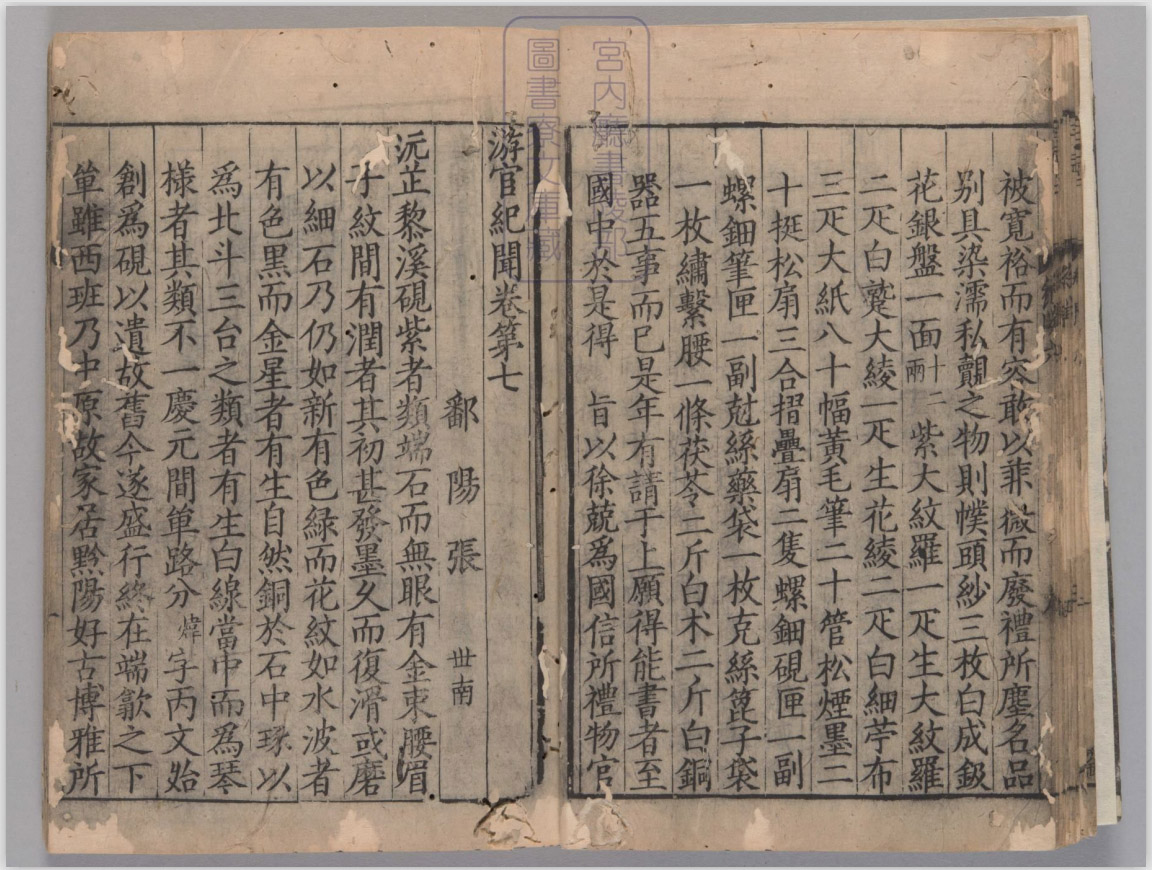 被寬裕而有容敢以菲微而廢禮所塵名品
别具染濡私覿之物則幞頭紗三枚白成鈒
花銀盤一面十二兩紫大紋羅一疋生大紋羅
二疋白鷔大綾一疋生花綾二疋白細苧布
三疋大紙八十幅黃毛筆二十管松煙墨二
十挺松扇三合摺疊扇二隻螺鈿硯匣一副
螺鈿筆匣一副尅絲藥袋一枚克絲篦子袋
一枚繡繫腰一條茯苓二斤白术二斤白銅
器五事而已是年有請于上願得能書者至
國中於是得 旨以徐兢爲國信所禮物官
游宦紀聞卷第七
鄱陽張 丗南
沅芷黎溪硯紫者類端石而無眼有金束腰眉
子紋間有潤者其初甚發墨久而復滑或磨
以細石乃仍如新有色綠而花紋如水波者
有色黑而金星者有生自然銅於石中琢以
爲北斗三台之類者有生白線當中而爲琴
樣者其類不一慶元間單路分煒字丙文始
創爲硯以遺故舊今遂盛行終在端歙之下
單雖西班乃中原故家居黔陽好古博雅所
宮内廳書陵部
圖書寮文庫藏